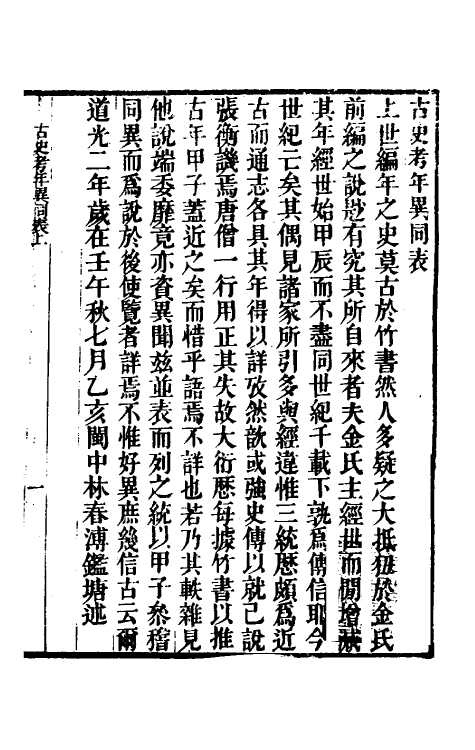 古史考年異同表
上世編年之史莫古於竹書然人多疑之大抵狃於金氏
前編之說尠有究其所自來者夫金氏主經世而間增
其年經世始甲辰而不盡同世紀千載下孰爲傳信耶今
世紀亡矣其偶見諸家所引多與經違惟三統厯頗爲近
古而通志各具其年得以詳攷然歆或強史傳以就己說
張衡譏焉唐僧一行用正其失故大衍厯每據竹書以推
古年甲子蓋近之矣而惜乎語焉不詳也若乃其軼雜見
他說端委靡竟亦資異聞兹並表而列之統以甲子參稽
同異而爲說於後使覽者詳焉不惟好異庶幾信古云爾
道光二年歲在壬午秋七月乙亥閩中林春溥鑑塘述
古史考年異同表上
一